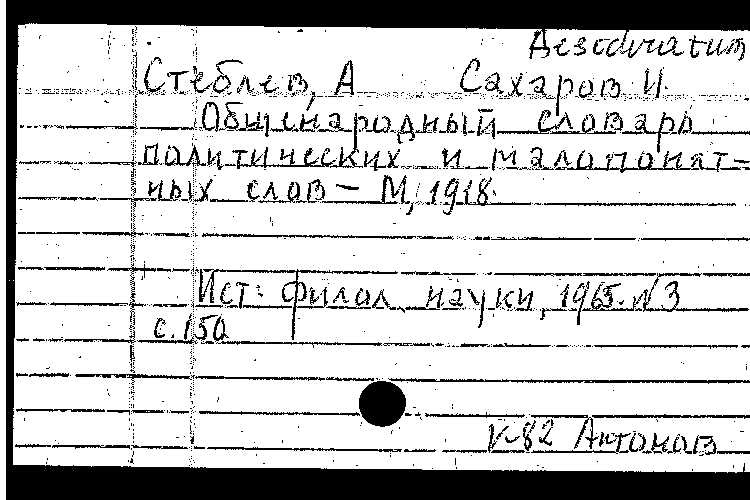 Desideratum
Стеблев, А Сахаров И.
Общенародный словарь
политических и малопонят-
ных слов – М, 1918.
Ист: Филол. науки, 1965. №3
с. 150
V-82 Антонов